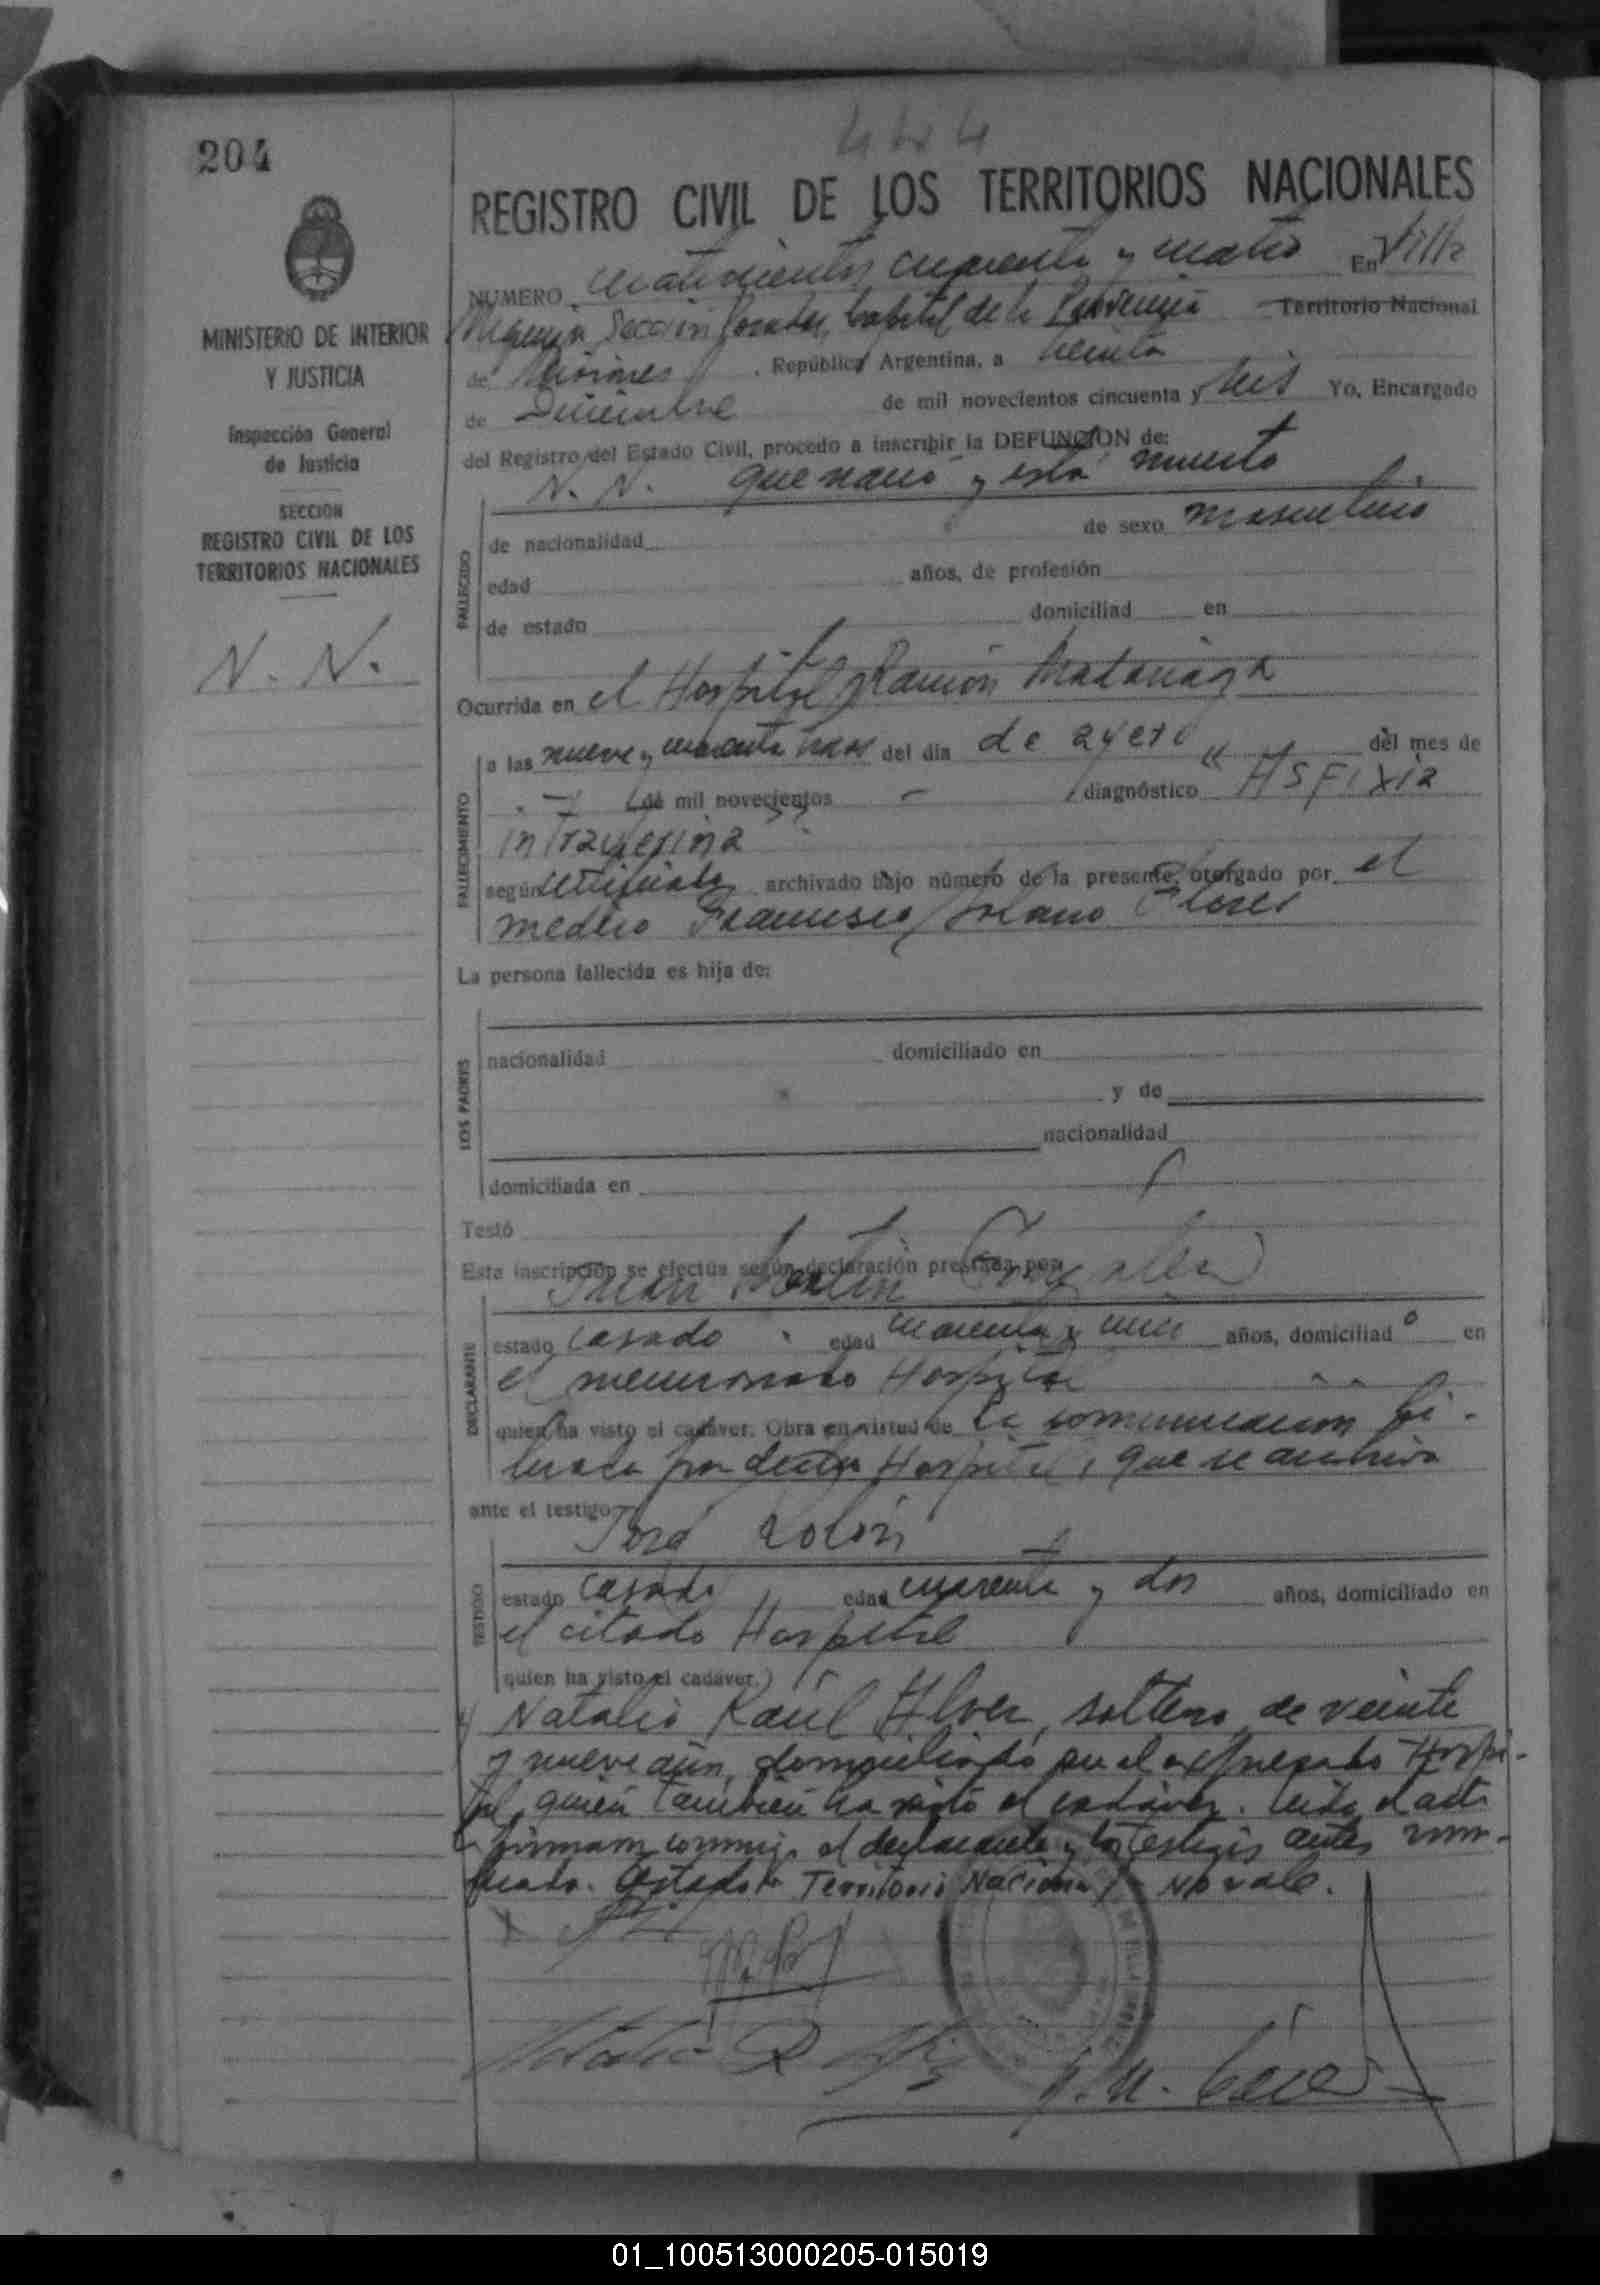 204
444
REGISTRO CIVIL DE LOS TERRITORIOS NACIONALES
MINISTERIO DE INTERIOR
Y JUSTICIA
Inspección General
de Justicia
SECCION
REGISTRO CIVIL DE LOS
TERRITORIOS NACIONALES
N. N.
NUMERO cuatrocientos cuarenta y cuatro En Villa
Sección Posadas, Capital de la Provincia Territorio Nacional
de Misiones, República Argentina, a treinta
de Diciembre de mil novecientos cincuenta y seis Yo, Encargado
del Registro del Estado Civil, procedo a inscribir la DEFUNCION de:
N. N. que nació y está muerto
FALLECIDO
de nacionalidad de sexo masculino
edad años, de profesión
de estado domiciliad en
Ocurrida en el Hospital Ramón Madariaga
FALLECIMIENTO
a las nueve y cuarenta horas del día de ayer del mes de
de mil novecientos diagnóstico "Asfixia
intrauterina"
según certificado archivado bajo número de la presente, otorgado por el
médico Francisco Solano Flores
La persona fallecida es hija de:
LOS PADRES
nacionalidad domiciliado en
y de
nacionalidad
domiciliada en
Testó
Esta inscripción se efectúa según declaración prestada por
Juan González
DECLARANTE
estado casado edad cuarenta y años, domiciliado en
el mencionado Hospital
quien ha visto el cadáver. Obra en virtud de la comunicación fi-
por dicho Hospital, que se archiva
ante el testigo
José Colón
TESTIGO
estado casado edad cuarenta y dos años, domiciliado en
el citado Hospital
quien ha visto el cadáver.)
y Natalio Raúl Alvez, soltero, de veinte
y nueve años, domiciliado en el expresado Hospi-
tal, quien también ha visto el cadáver. Leída el acta
la firman conmigo el declarante y los testigos antes nom-
brado. Testado: Territorio Nacional - no vale.
Natalio R